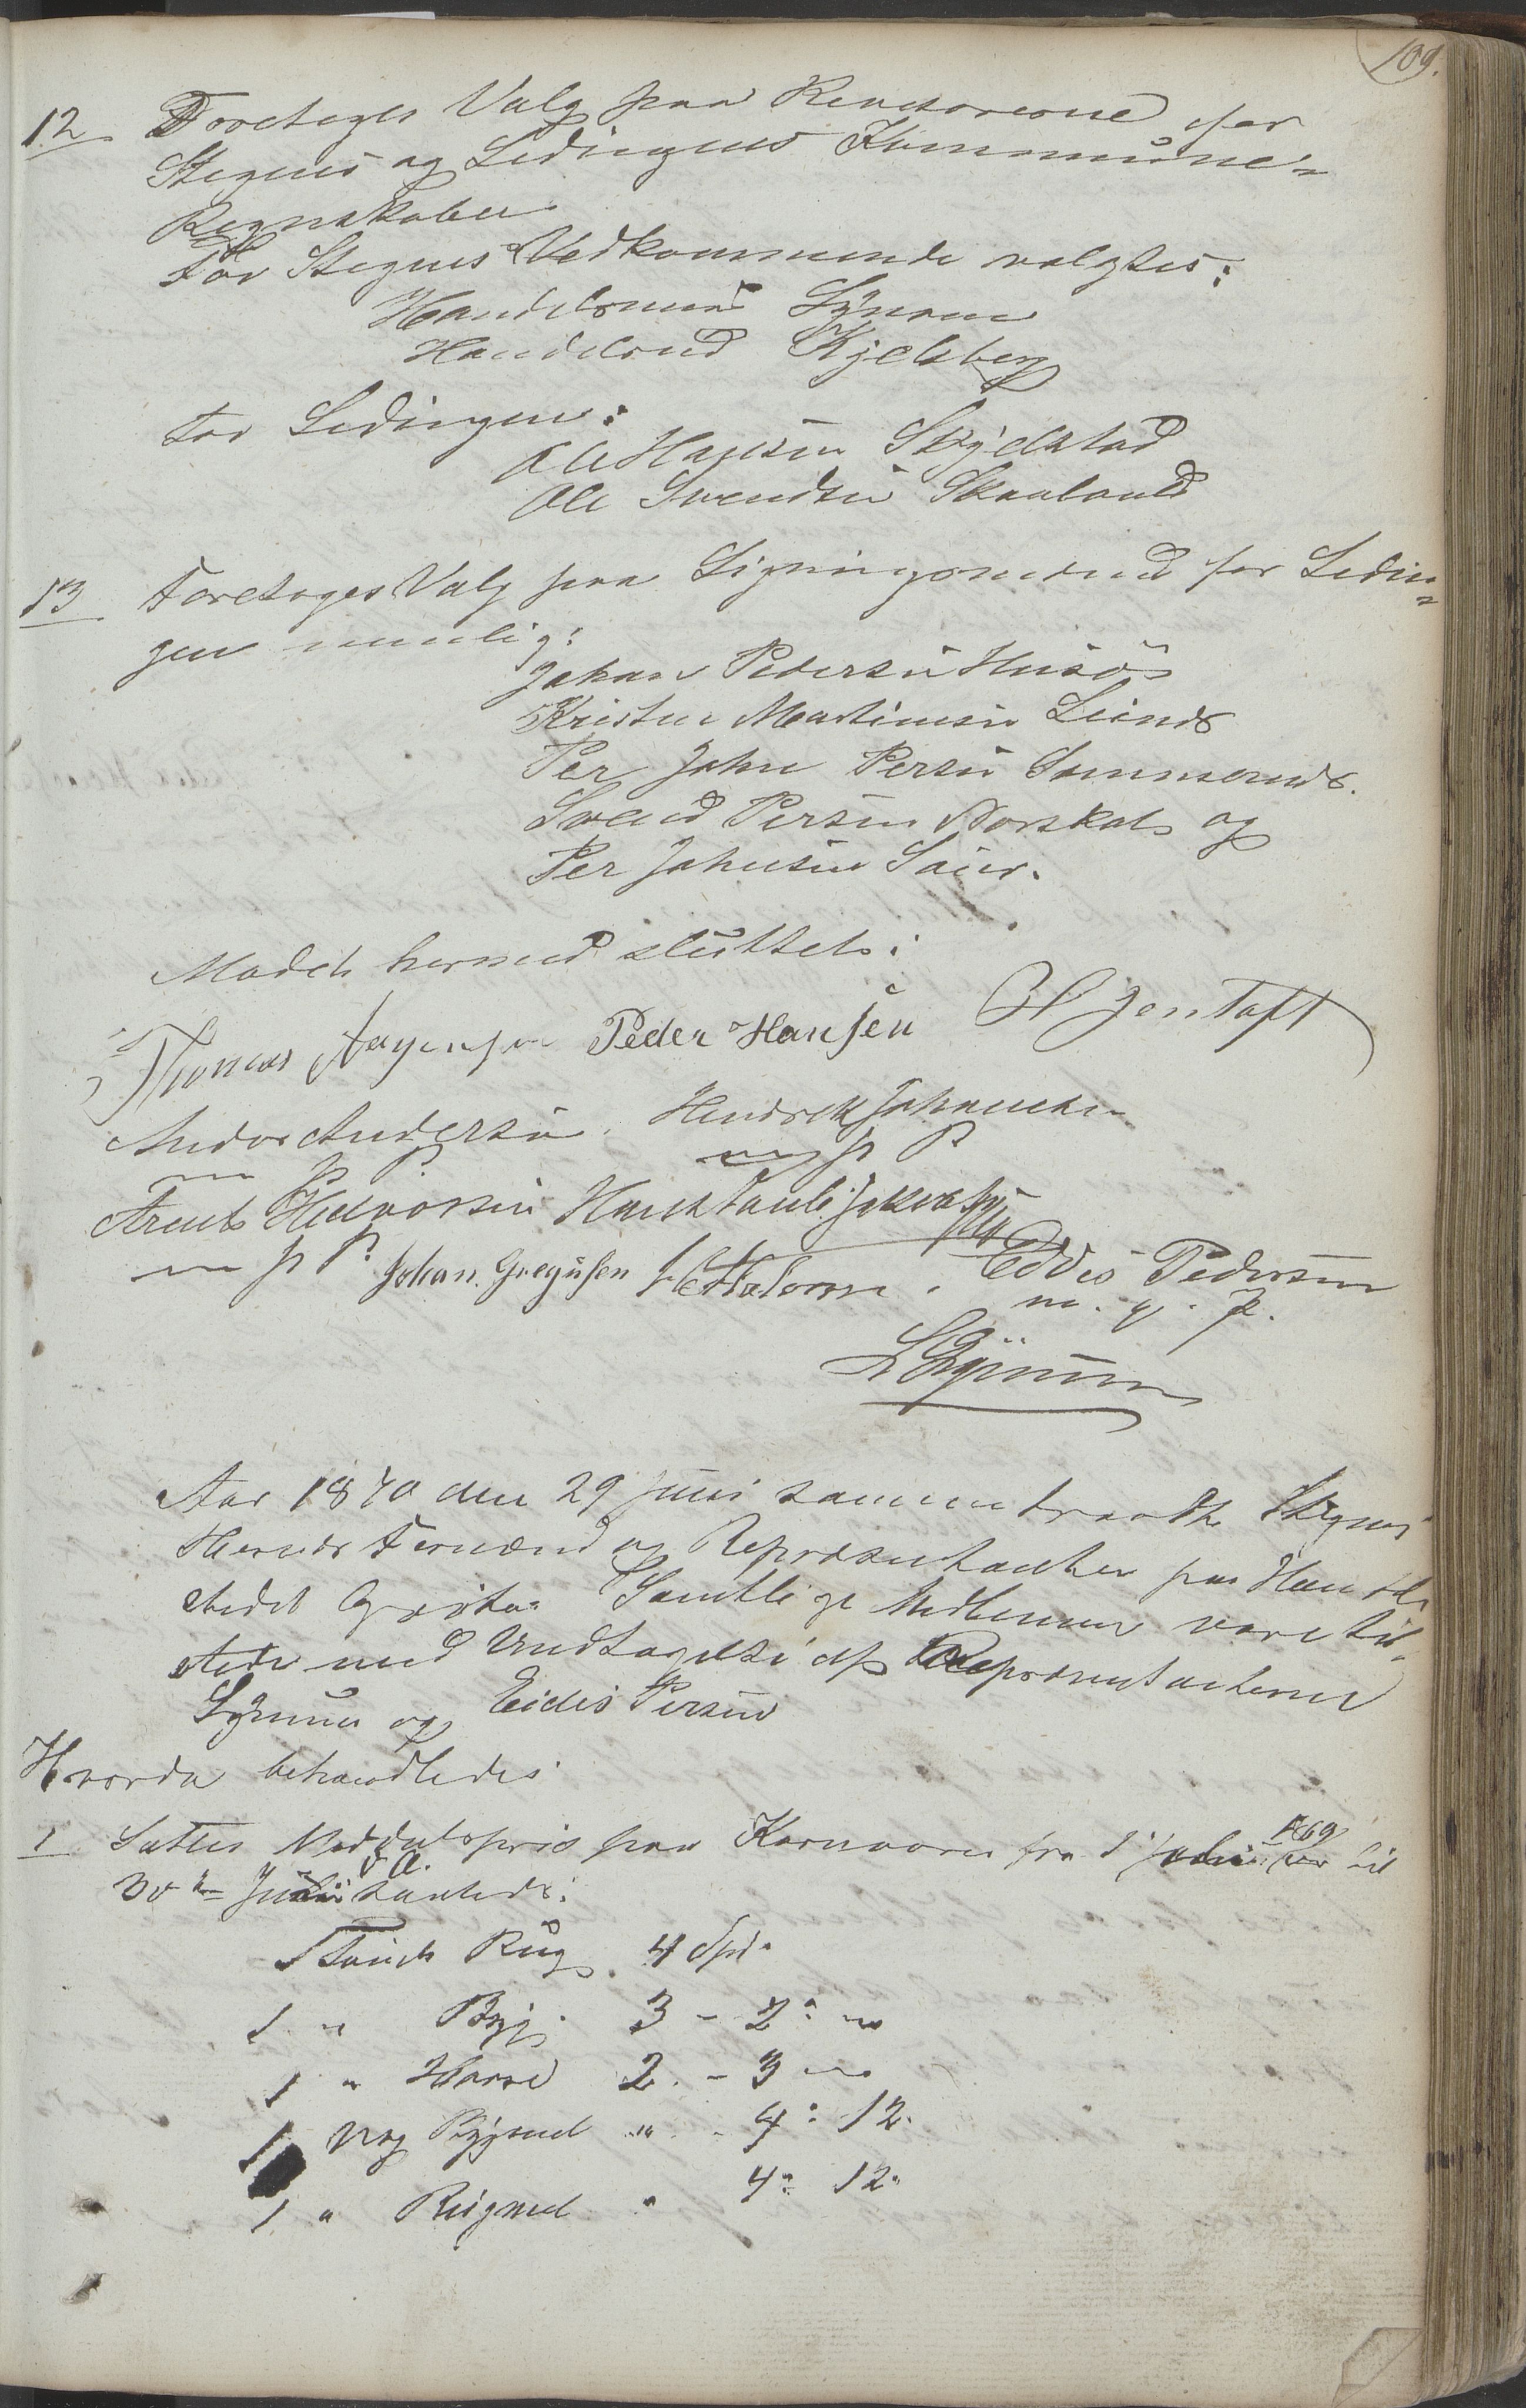 109.
12 Foretoges Valg paa Revisorerne for
Stegens og Ledingens Kommune-
Regnskaber
For Stegens Vedkommende valgtes:
Handelsmand Symre
Handelsmd Kjelsberg
For Ledingen:
Ole Hansen Skjelstad
Ole Svendsen Skarland
13 Foretoges Valg paa Ligningsmænd for Ledin-
gen nemlig:
Johan Pedersen Husö
Kristen Martinsen Leines
Per John Persen Sommernes.
Svend Persen Norskot og
Per Johnsen Saur.
Mödet hermed sluttet:
Thomas Jörgensen Peder Hansen H Jentoft
Andor Andersen. Hendrik Johannesen
m p P. m p P
Arent Hedvorsen Hans Paul Jakobsen
m p P. Johan Gregusen Eddis Pedersen
m. p. p.
Aar 1870 den 29 Juni sammentraadte Stegens
Herreds Formænd og Repræsentanter paa Handels
stedet Gröta. Samtlige Medlemmer vare til-
stede med Undtagelse af Repræsentanterne
Symre og Eidis Persen
Hvorda behandledes
1 Sattes Middelspris paa Kornvarer fra 1 Juli 1869 til
30te Juni d. A. saaledes:
1 Tönde Rug 4 Spd.
1 " Byg. 3 - 2: "
1 " Havre 2. - 3 "
1 Vog Bygmel " - 4: 12.
1 " Rugmel " 4: 12.